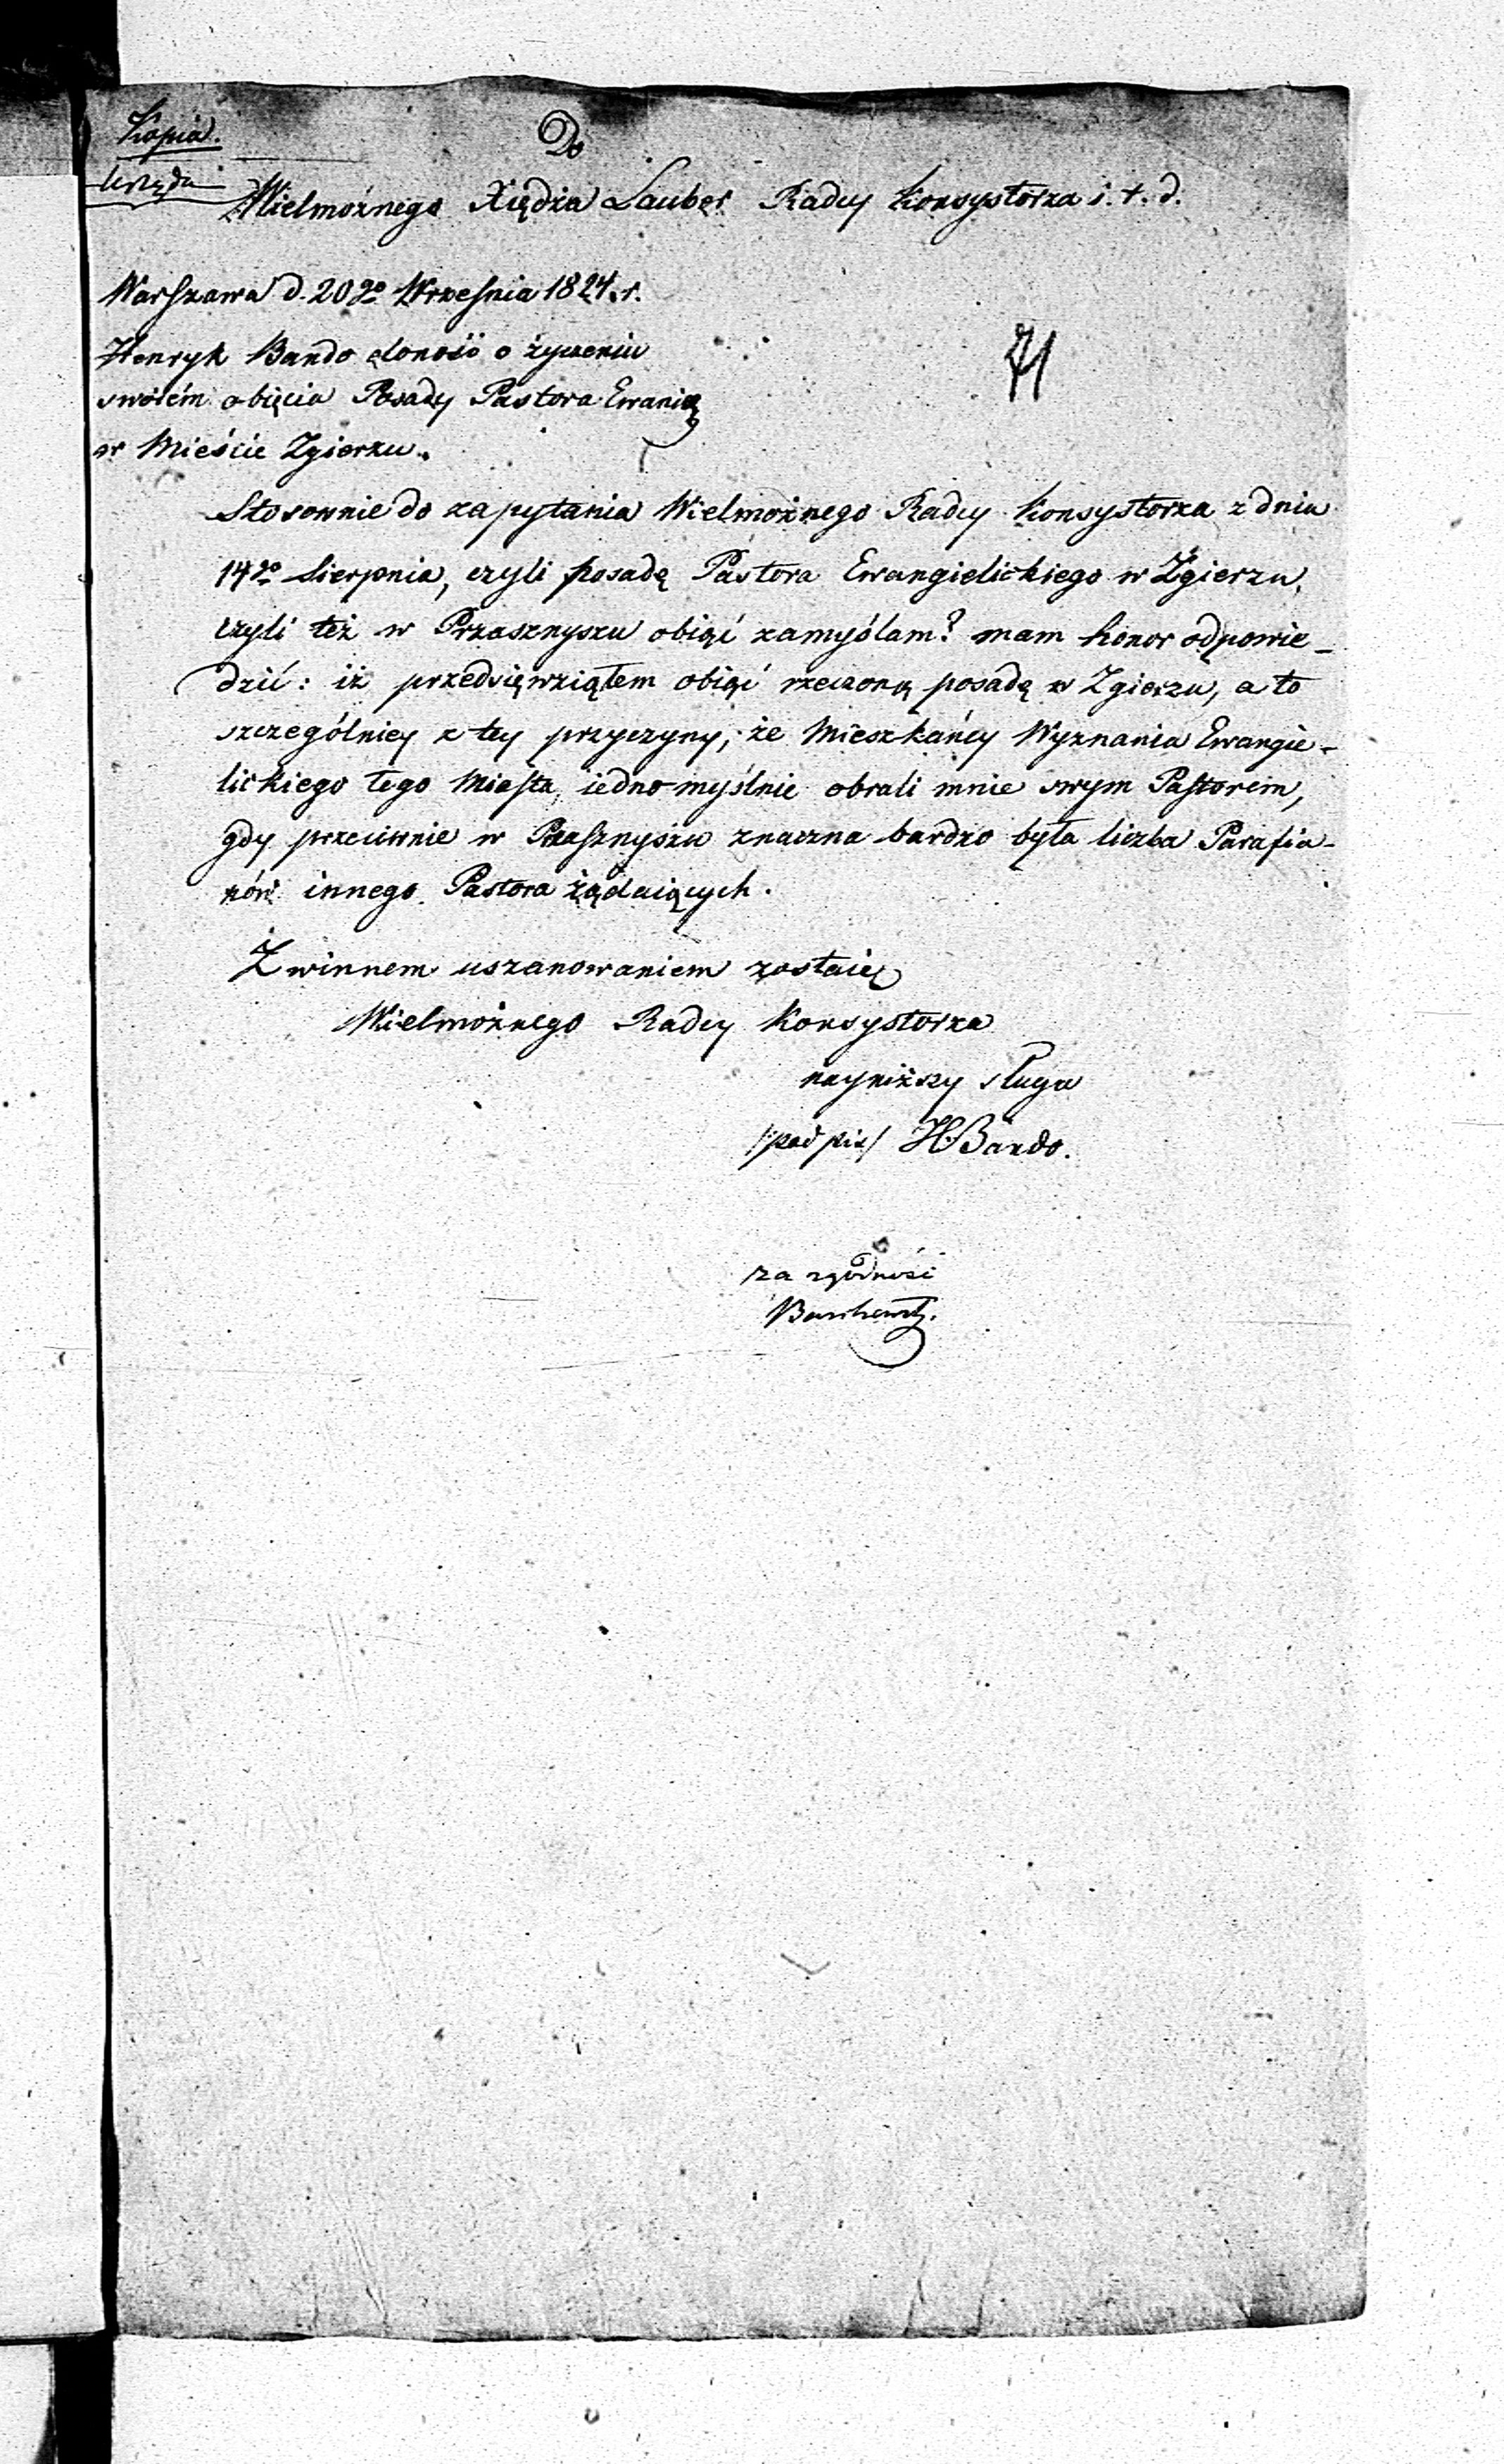 Kopia.
Urzędu
Do
Wielmożnego Xiędza Lauber Radcy Konsystorza i. t. d.
Warszawa d. 20go Września 1824. r.
Henryk Bando donosi o życzeniu
swoiém obięcia Posady Pastora Ewani
w Mieście Zgierzu.
71
Stosownie do zapytania Wielmożnego Radcy Konsystorza z dnia
14go Sierpnia, czyli posadę Pastora Ewangielickiego w Zgierzu,
czyli też w Przasznyszu obiąć zamyślam? mam honor odpowie-
dzić: iż przedsięwziąłem obiąć rzeczoną posadę w Zgierzu, a to
szczególniey z tey przyczyny, że Mieszkańcy Wyznania Ewangie-
lickiego tego Miasta, iedno-myślnie obrali mnie swym Pastorem,
gdy przeciwnie w Przasznyszu znaczna bardzo była liczba Parafia-
nów innego Pastora żądaiących.
Z winnem uszanowaniem zostaię
Wielmożnego Radcy Konsystorza
nayniższy sługa
/:podpis/ H Bando.
za zgodność